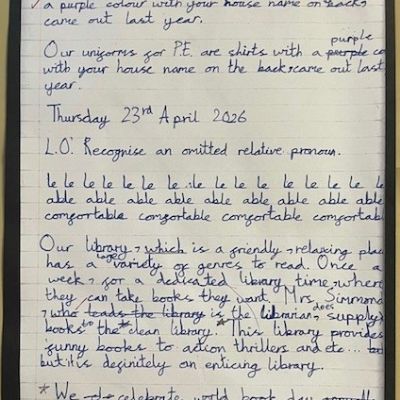 a purple colour with your house name on back,
came out last year.
Our uniforms for P.E. are shirts with a purple co
with your house name on the back, came out last
year.
Thursday 23rd April 2026
L.O: Recognise an omitted relative pronoun.
le le le le le le le le le le le le le le
able able able able able able able able able
comfortable comfortable comfortable comfortabl
Our library, which is a friendly, relaxing plac
has a large variety of genres to read. Once a
week, for a dedicated library time, where
they can take books they want. Mrs. Simmond
, who leads the library is the librarian, does supply
books to the clean library. * This library provides
funny books to action thrillers and etc...
but it is definitely an enticing library.
* We celebrate world book day